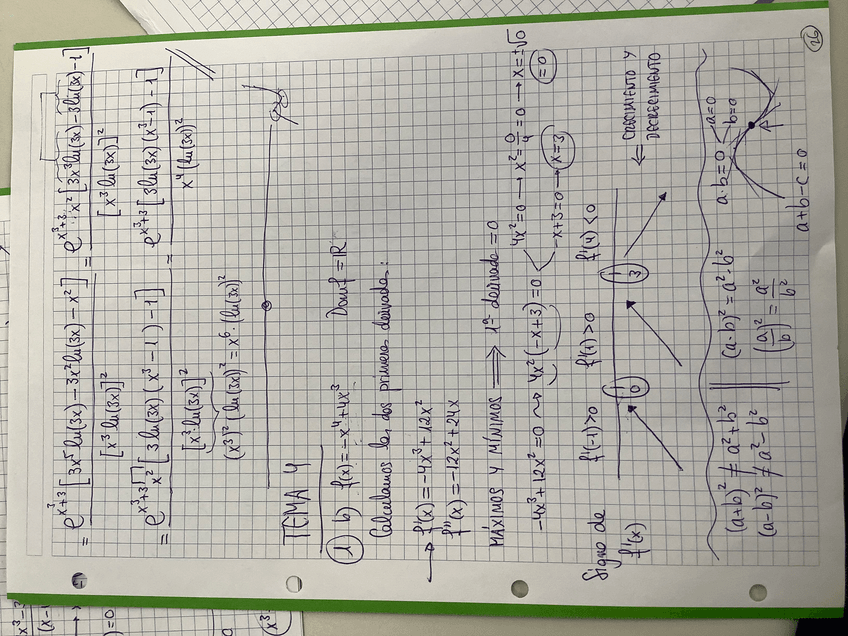 = e^(x³+3) [3x⁵ ln(3x) - 3x² ln(3x) - x²] / [x³ ln(3x)]² = e^(x³+3) · x² [3x³ ln(3x) - 3 ln(3x) - 1] / [x³ ln(3x)]²
= e^(x³+3) x² [3 ln(3x) (x³ - 1) - 1] / [x³ · ln(3x)]² = e^(x³+3) [3 ln(3x) (x³ - 1) - 1] / x⁴ (ln(3x))²
(x³)² (ln(3x))² = x⁶ · (ln(3x))²
TEMA 4
① b) f(x) = -x⁴ + 4x³ Dom f = ℝ
Calculamos las dos primeras derivadas:
→ f'(x) = -4x³ + 12x²
f''(x) = -12x² + 24x
MÁXIMOS Y MÍNIMOS ⟹ 1ª derivada = 0
-4x³ + 12x² = 0 ⇝ 4x² (-x + 3) = 0
4x² = 0 → x² = 0/4 = 0 → x = ±√0 = 0
-x + 3 = 0 → x = 3
Signo de f'(x)
f'(-1) > 0 f'(1) > 0 f'(4) < 0
0 3
← CRECIMIENTO Y DECRECIMIENTO
(a+b)² ≠ a² + b² (a·b)² = a² · b² a·b = 0 a = 0 b = 0
(a-b)² ≠ a² - b² (a/b)² = a²/b² a + b - c = 0
26
x³-3
(x-1
)=0
x³